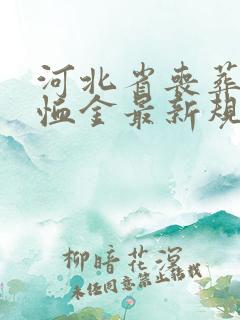 河北省丧葬
恤金最新规
柳暗花溟
未经同意禁止转载